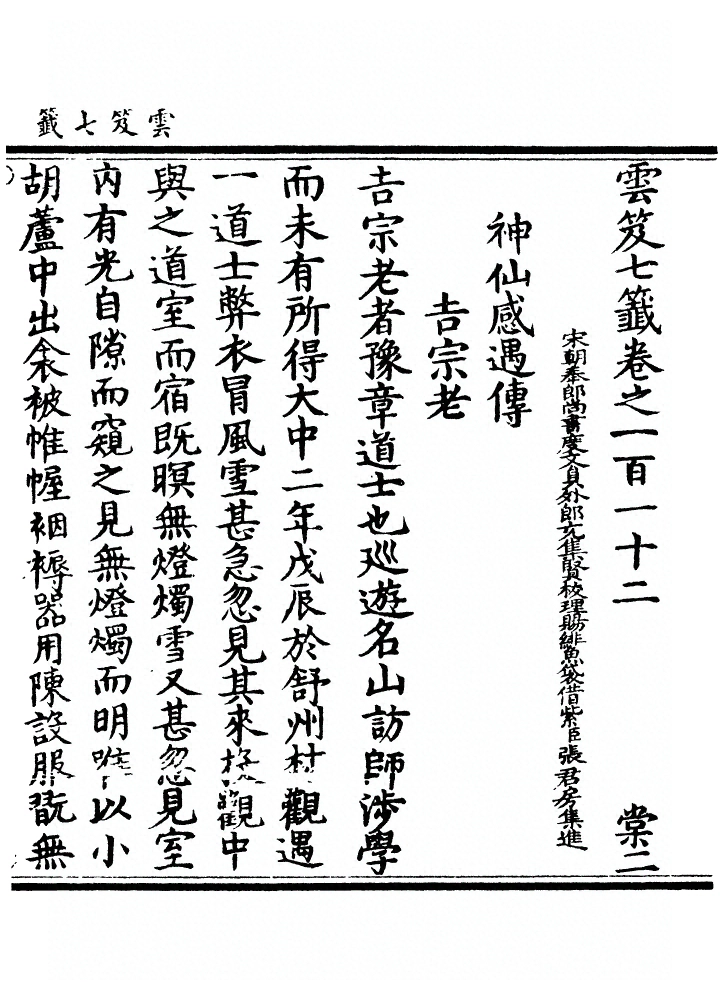 雲笈七籤
雲笈七籤卷之一百一十二 棠二
宋朝奉郎尚書度支員外郎充集賢校理賜緋魚袋借紫臣張君房集進
神仙感遇傳
吉宗老
吉宗老者豫章道士也巡遊名山訪師涉學
而未有所得大中二年戊辰於舒州村觀遇
一道士弊衣冒風雪甚急忽見其來投觀中
與之道室而宿既暝無燈燭雪又甚忽見室
內有光自隙而窺之見無燈燭而明唯以小
胡蘆中出衾被帷幄裀褥器用陳設服翫無